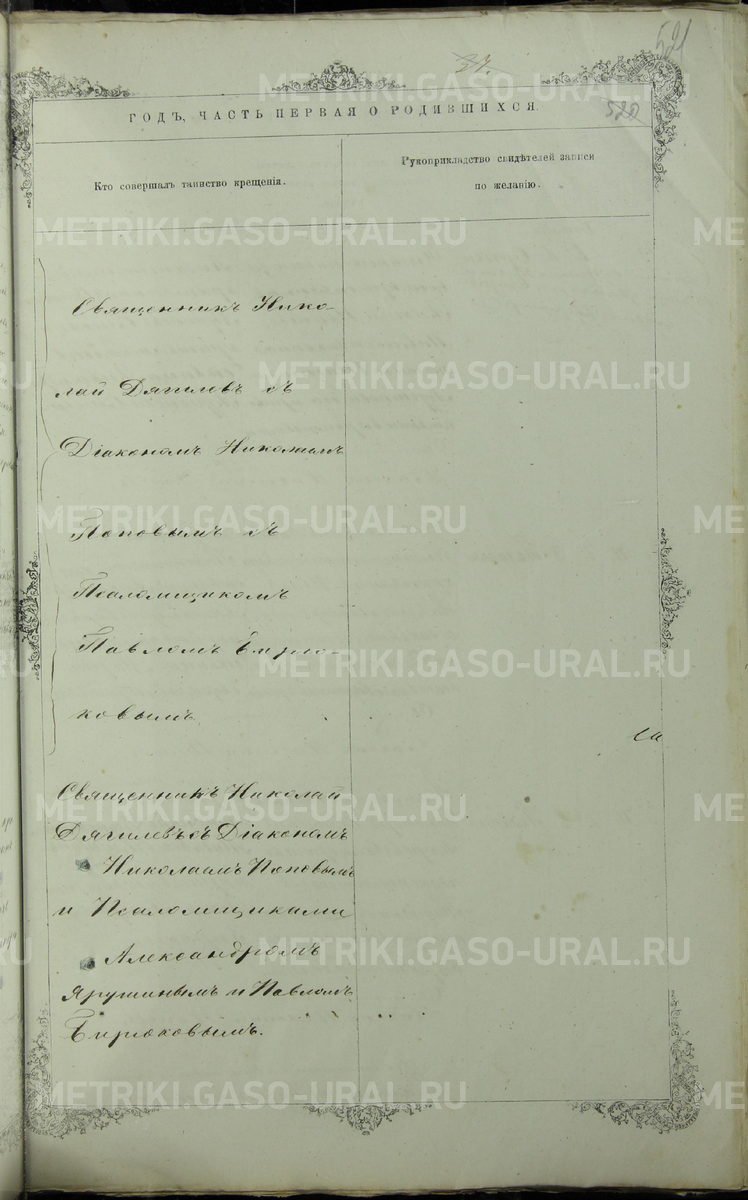 521
37.
520
ГОДЪ, ЧАСТЬ ПЕРВАЯ О РОДИВШИХСЯ.
Кто совершалъ таинство крещенія.
Рукоприкладство свидѣтелей записи
по желанію.
Священникъ Нико-
лай Дягилевъ съ
Діакономъ Николаемъ
Поповымъ съ
Псаломщикомъ
Павломъ Бирю-
ковымъ
Священникъ Николай
Дягилевъ съ Діакономъ
Николаемъ Поповымъ
и Псаломщиками
Александромъ
Ярушинымъ и Павломъ
Бирюковымъ.
METRIKI.GASO-URAL.RU